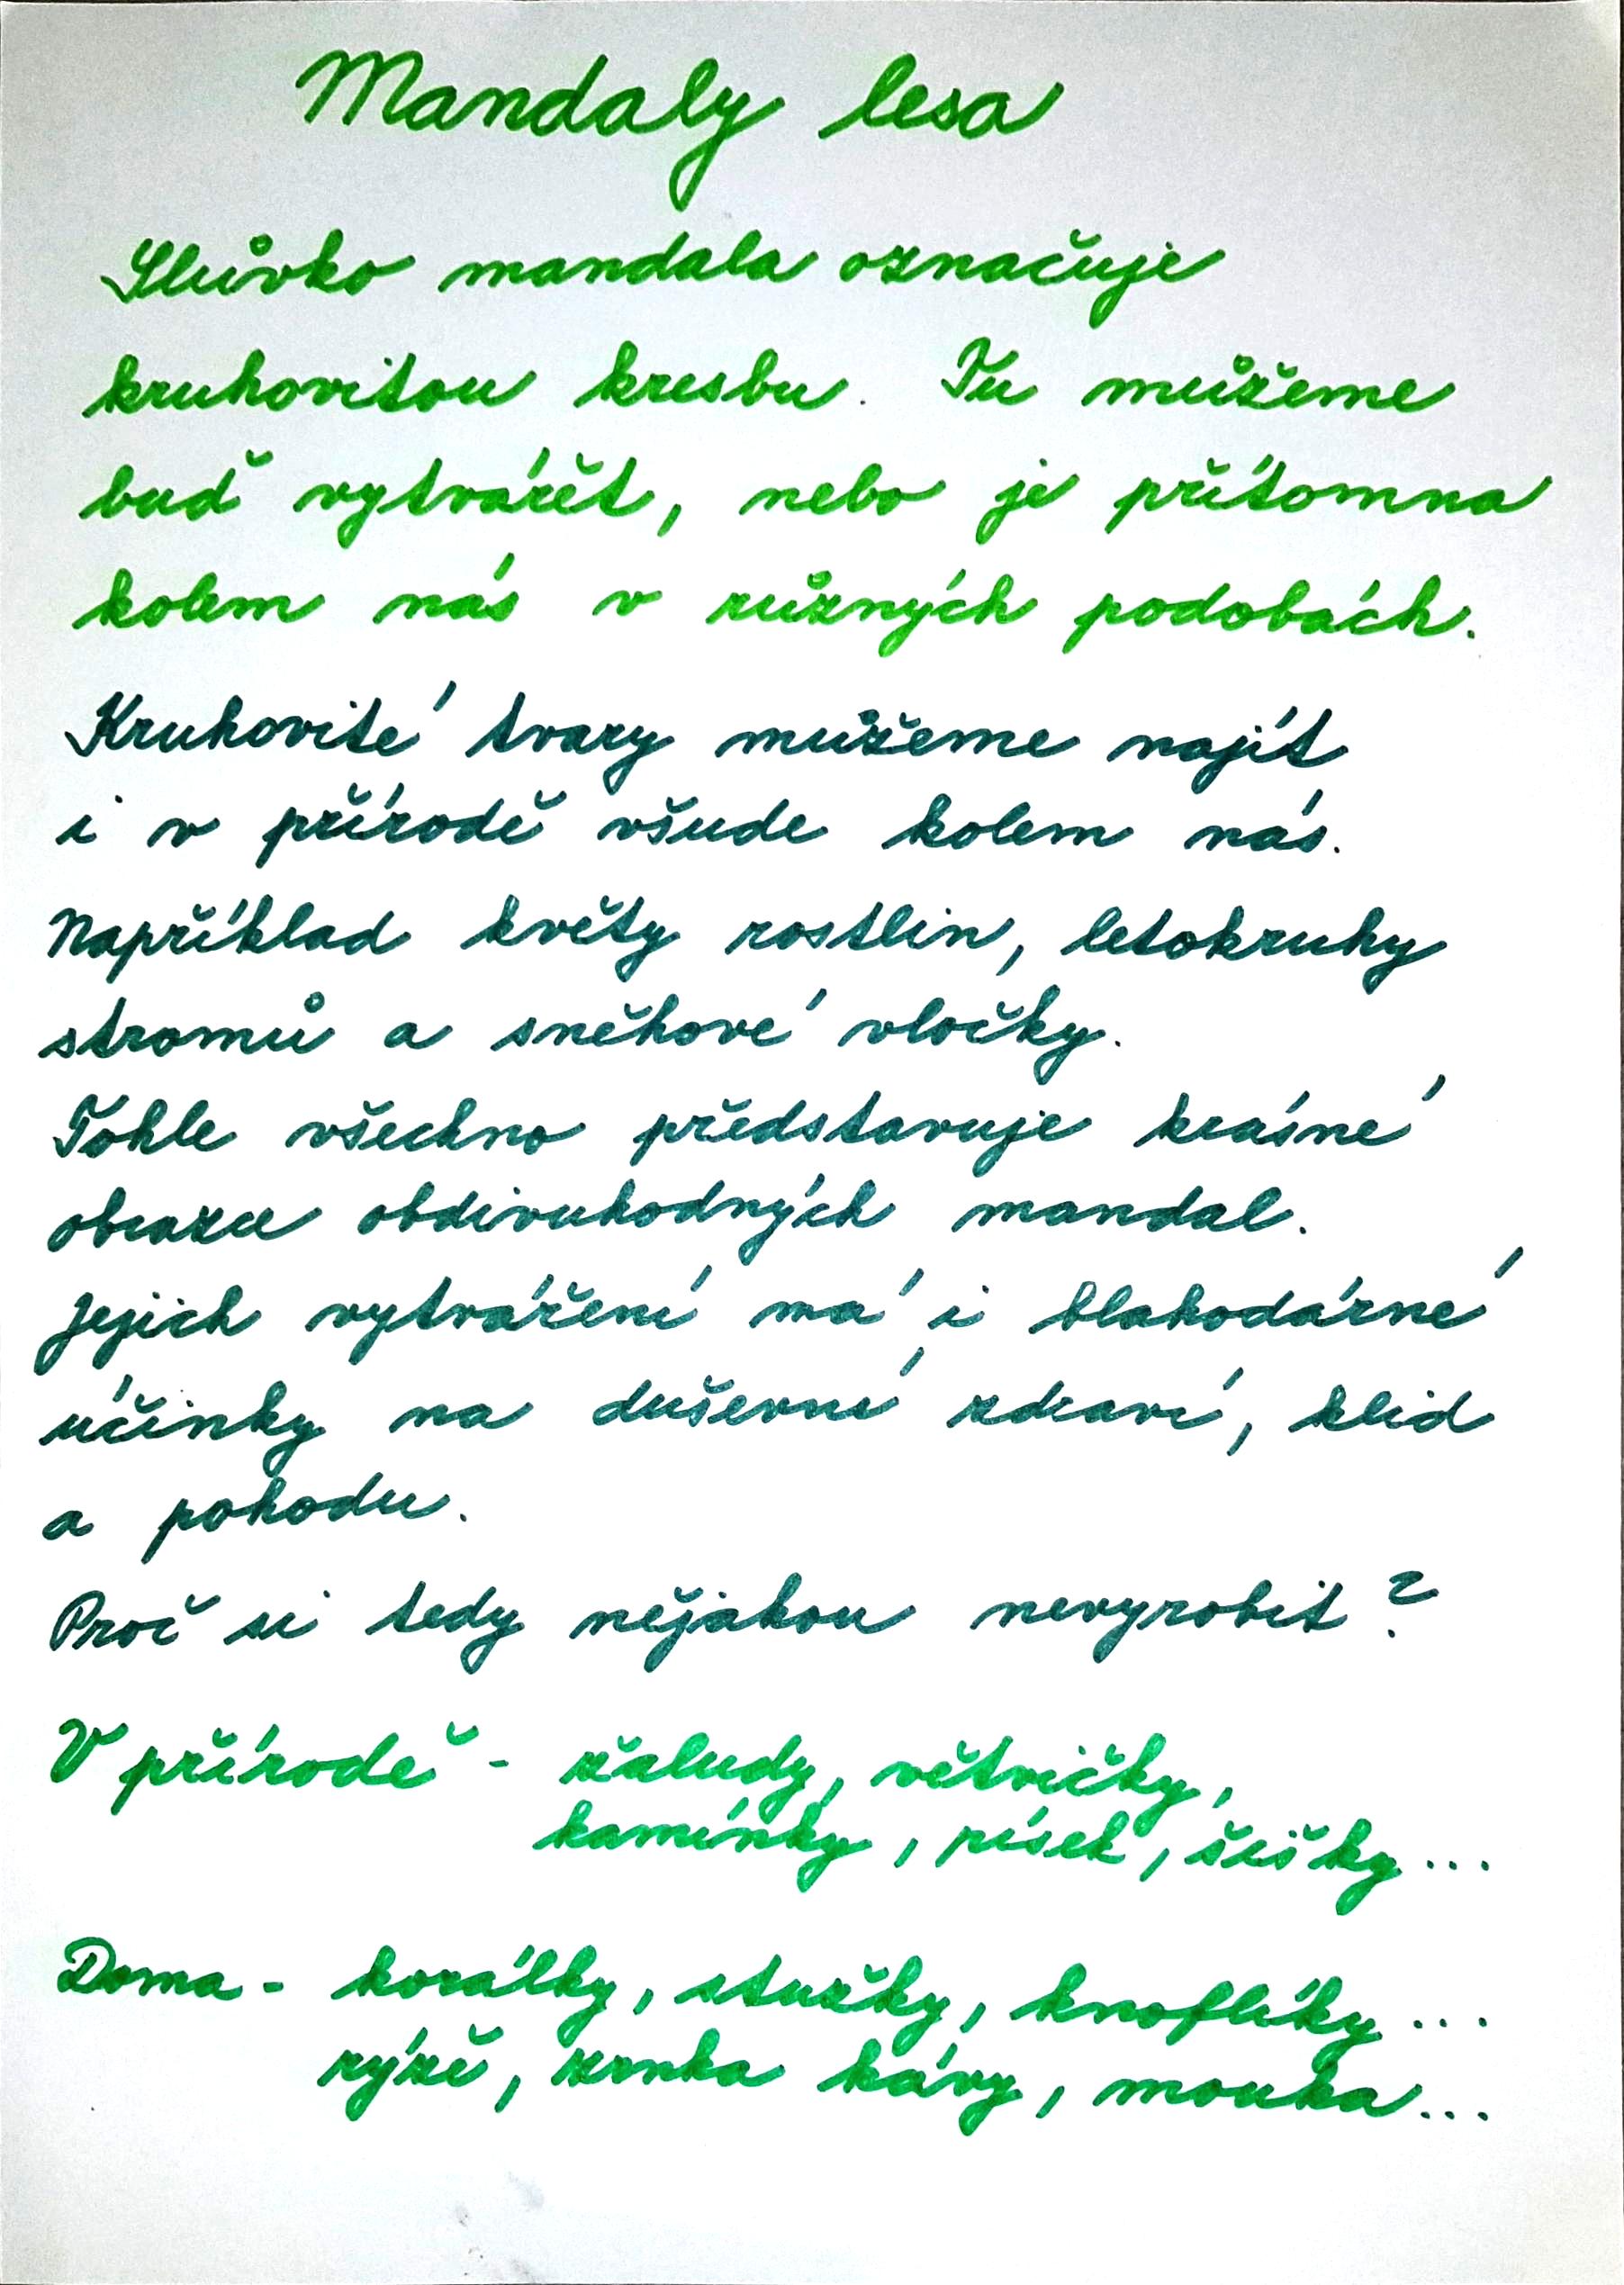 Mandaly lesa
Slůvko mandala označuje
kruhovitou kresbu. Tu můžeme
buď vytvářet, nebo je přítomna
kolem nás v různých podobách.
Kruhovité tvary můžeme najít
i v přírodě všude kolem nás.
Například květy rostlin, letokruhy
stromů a sněhové vločky.
Tohle všechno představuje krásné
obrazce obdivuhodných mandal.
Jejich vytváření má i blahodárné
účinky na duševní zdraví, klid
a pohodu.
Proč si tedy nějakou nevyrobit?
V přírodě - žaludy, větvičky,
kamínky, písek, šišky...
Doma - korálky, stužky, knoflíky...
rýže, zrnka kávy, mouka...